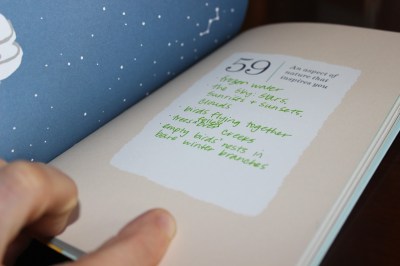 59
An aspect of
nature that
inspires you
the sky, stars,
sunrises + sunsets,
clouds
birds flying together
trees
creeks
empty birds' nests in
bare winter branches